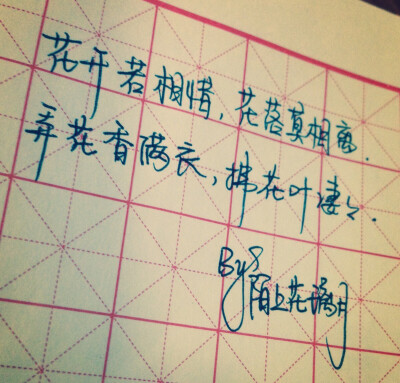 花开若相惜，花落莫相离.
弄花香满衣，拂花叶凄々.
By 陌上花满月